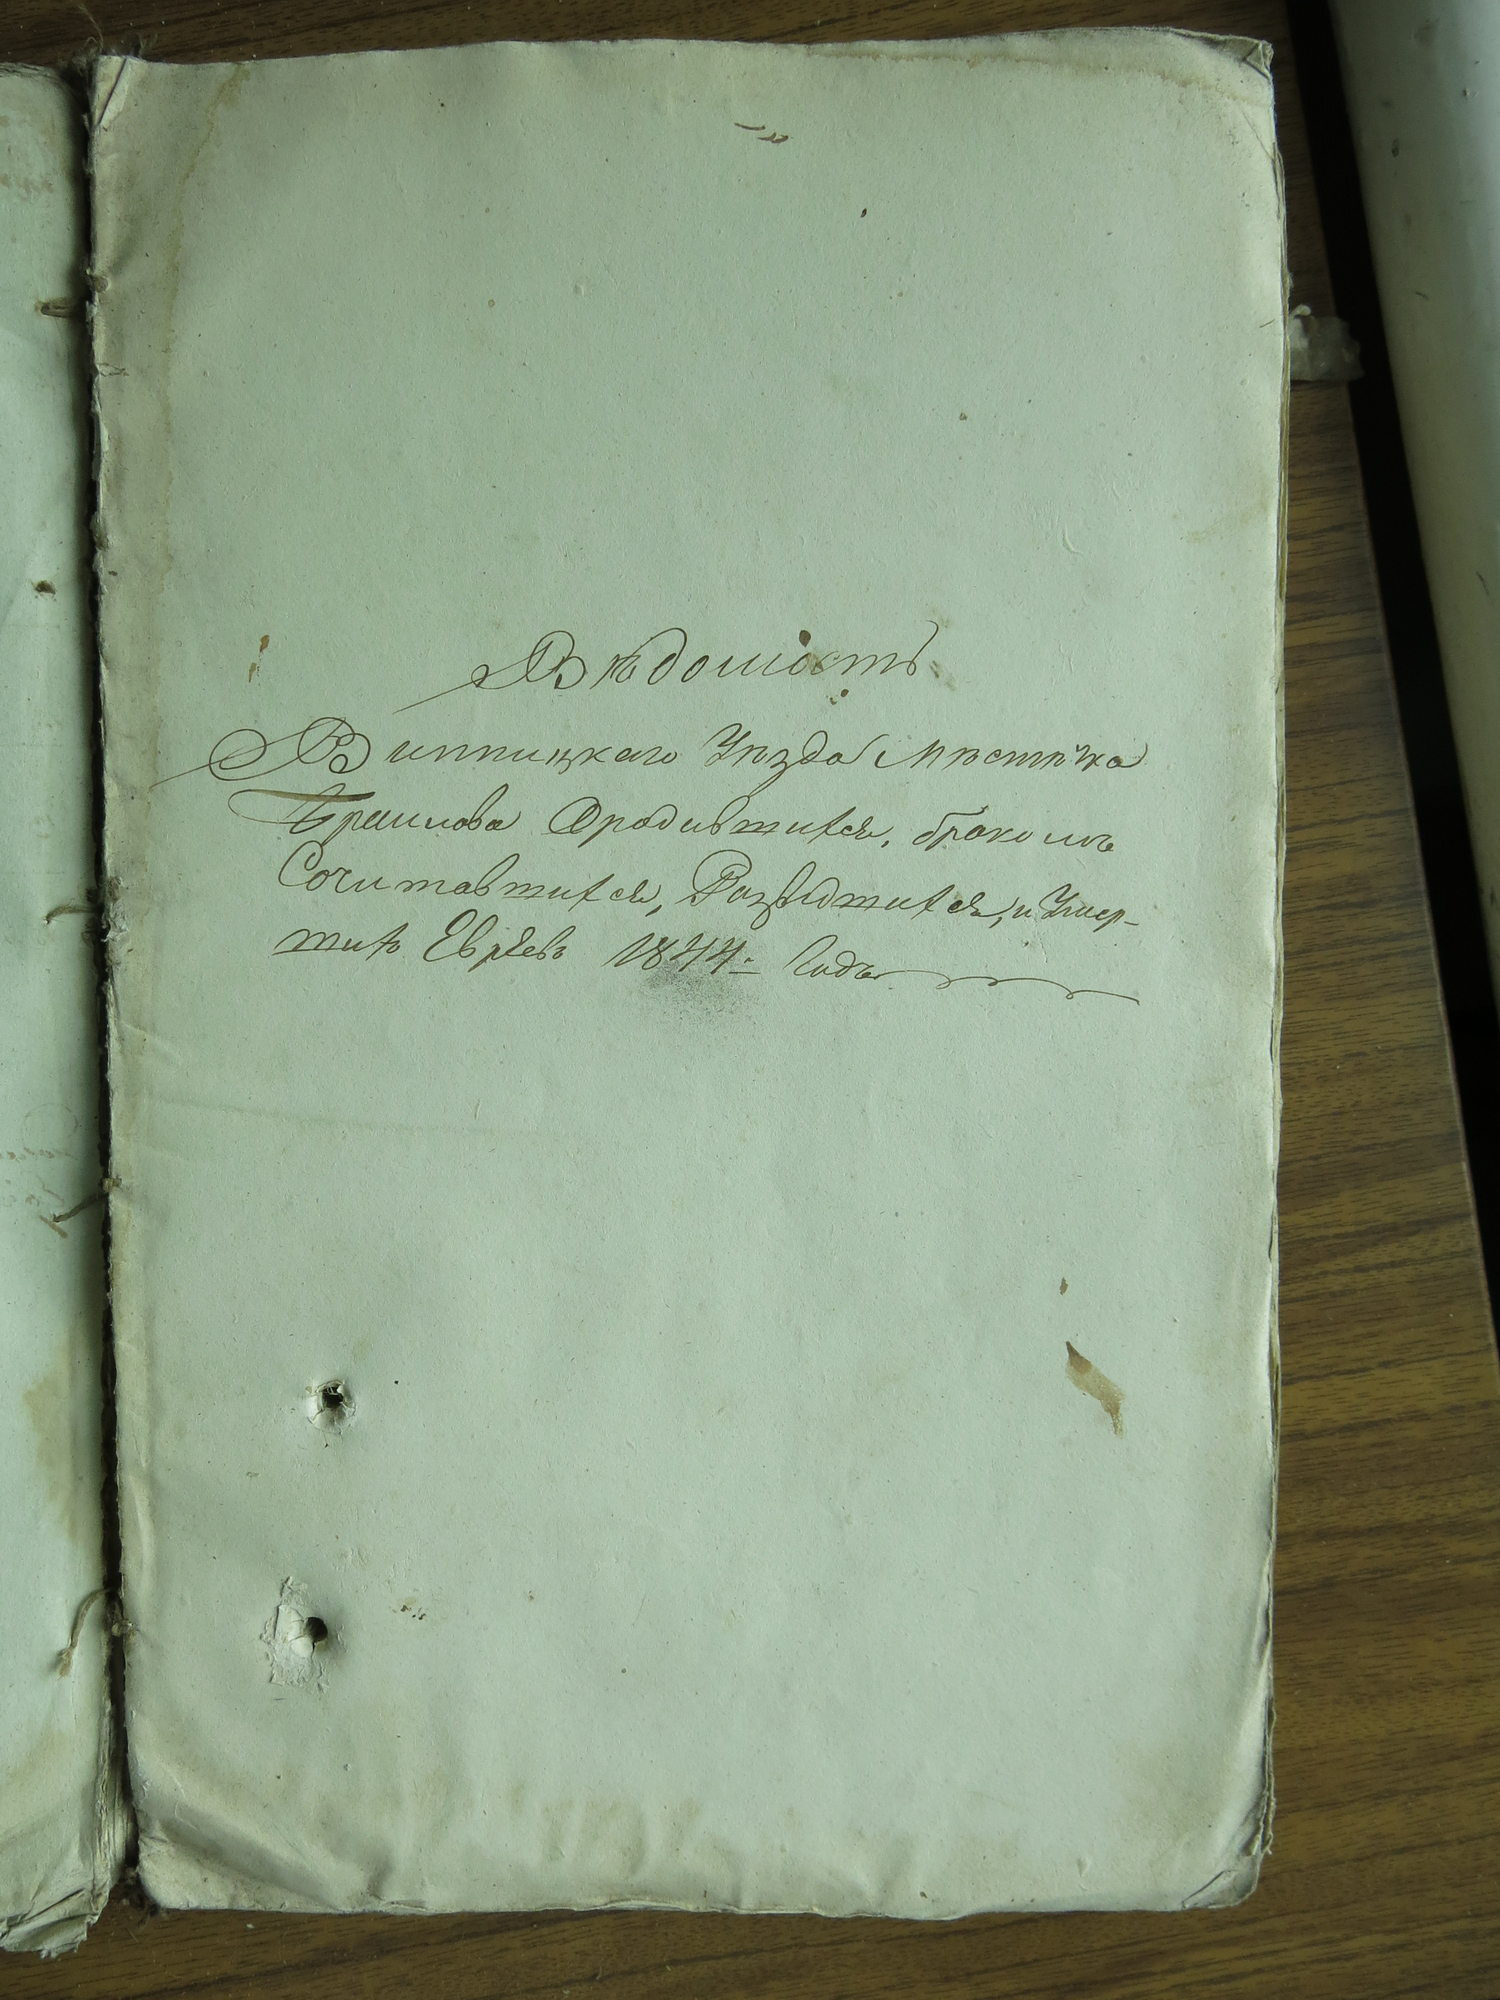 Вѣдомость
Винницкаго Уѣзда Мѣстѣчка
Браилова Ородившихся, бракомъ
Сочитавшихся, Разведшихся, и Умер-
шихъ Евреевъ 1844: Годъ